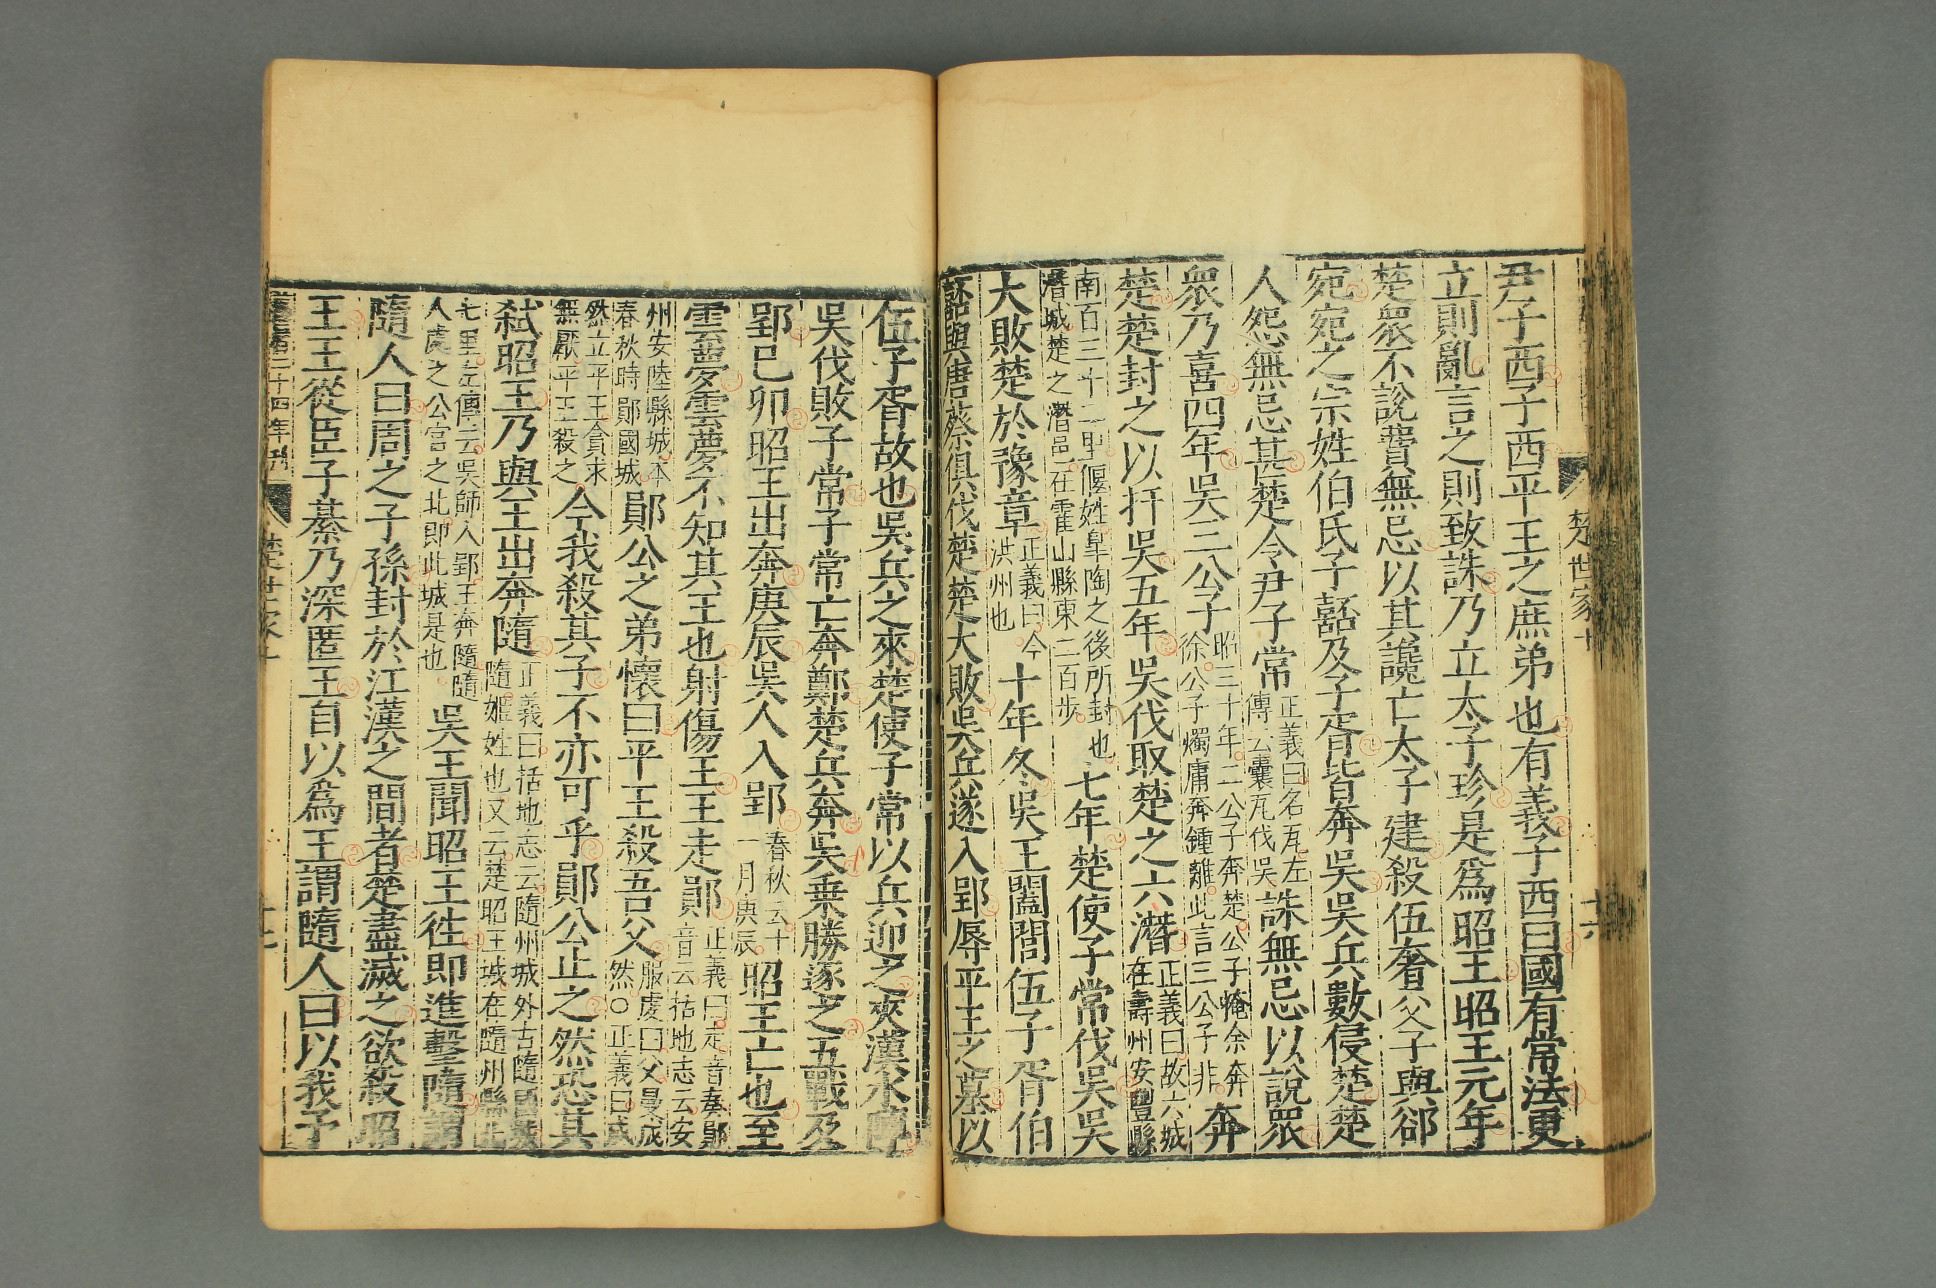 楚世家十
十六
尹子西子西平王之庶弟也有義子西曰國有常法更
立則亂言之則致誅乃立太子珍是爲昭王昭王元年
楚衆不說費無忌以其讒亡太子建殺伍奢父子與郤
宛宛之宗姓伯氏子嚭及子胥皆奔吳吳兵數侵楚楚
人怨無忌甚楚令尹子常
正義曰名瓦左
傳云囊瓦伐吳
誅無忌以說衆
衆乃喜四年吳三公子
昭三十年二公子奔楚公子掩余奔
徐公子燭庸奔鍾離此言三公子非
奔
楚楚封之以扞吳五年吳伐取楚之六潛
正義曰故六城
在壽州安豐縣
南百三十二里偃姓皐陶之後所封也
潛城楚之潛邑在霍山縣東二百步
七年楚使子常伐吳吳
大敗楚於豫章
正義曰今
洪州也
十年冬吳王闔閭伍子胥伯
嚭與唐蔡俱伐楚楚大敗吳兵遂入郢辱平王之墓以
伍子胥故也吳兵之來楚使子常以兵迎之夾漢水陣
吳伐敗子常子常亡奔鄭楚兵奔吳乗勝逐之五戰及
郢己卯昭王出奔庚辰吳人入郢
春秋云十
一月庚辰
昭王亡也至
雲夢雲夢不知其王也射傷王王走鄖
正義曰走音奏鄖
音云括地志云安
州安陸縣城本
春秋時鄖國城
鄖公之弟懷曰平王殺吾父
服虔曰父曼成
然○正義曰成
然立平王貪求
無厭平王殺之
今我殺其子不亦可乎鄖公止之然恐其
弑昭王乃與王出奔隨
正義曰括地志云隨州城外古隨國城
隨姬姓也又云楚昭王城在隨州縣北
七里左傳云吳師入郢王奔隨隨
人處之公宮之北即此城是也
吳王聞昭王徃即進擊隨謂
隨人曰周之子孫封於江漢之間者楚盡滅之欲殺昭
王王從臣子綦乃深匿王自以爲王謂隨人曰以我予
二十四年刊
楚世家十
十七